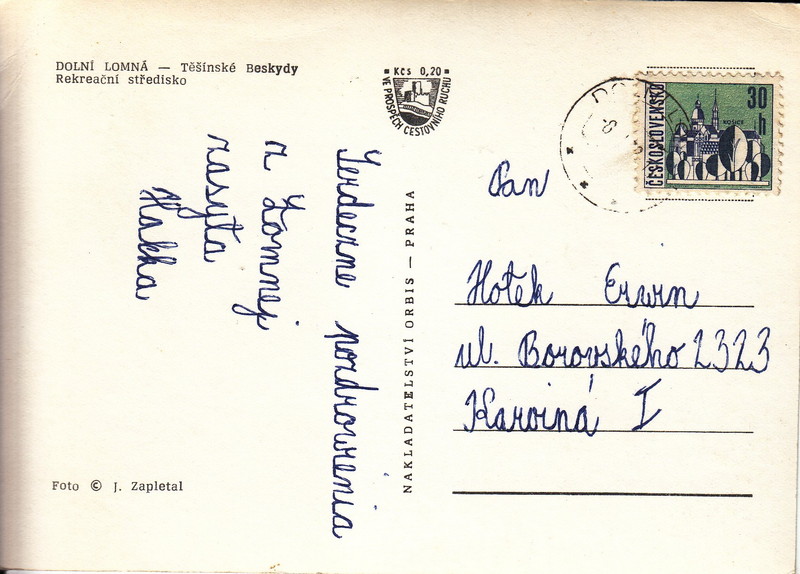 DOLNÍ LOMNÁ — Těšínské Beskydy
Rekreační středisko
Kčs 0,20
VE PROSPĚCH CESTOVNÍHO RUCHU
ČESKOSLOVENSKO
30 h
KOŠICE
Serdeczne pozdrowienia
z Łomnej
zasyła
Halka
NAKLADATELSTVÍ ORBIS — PRAHA
Pan
Hotek Erwin
ul. Borovského 2323
Karviná I
Foto © J. Zapletal